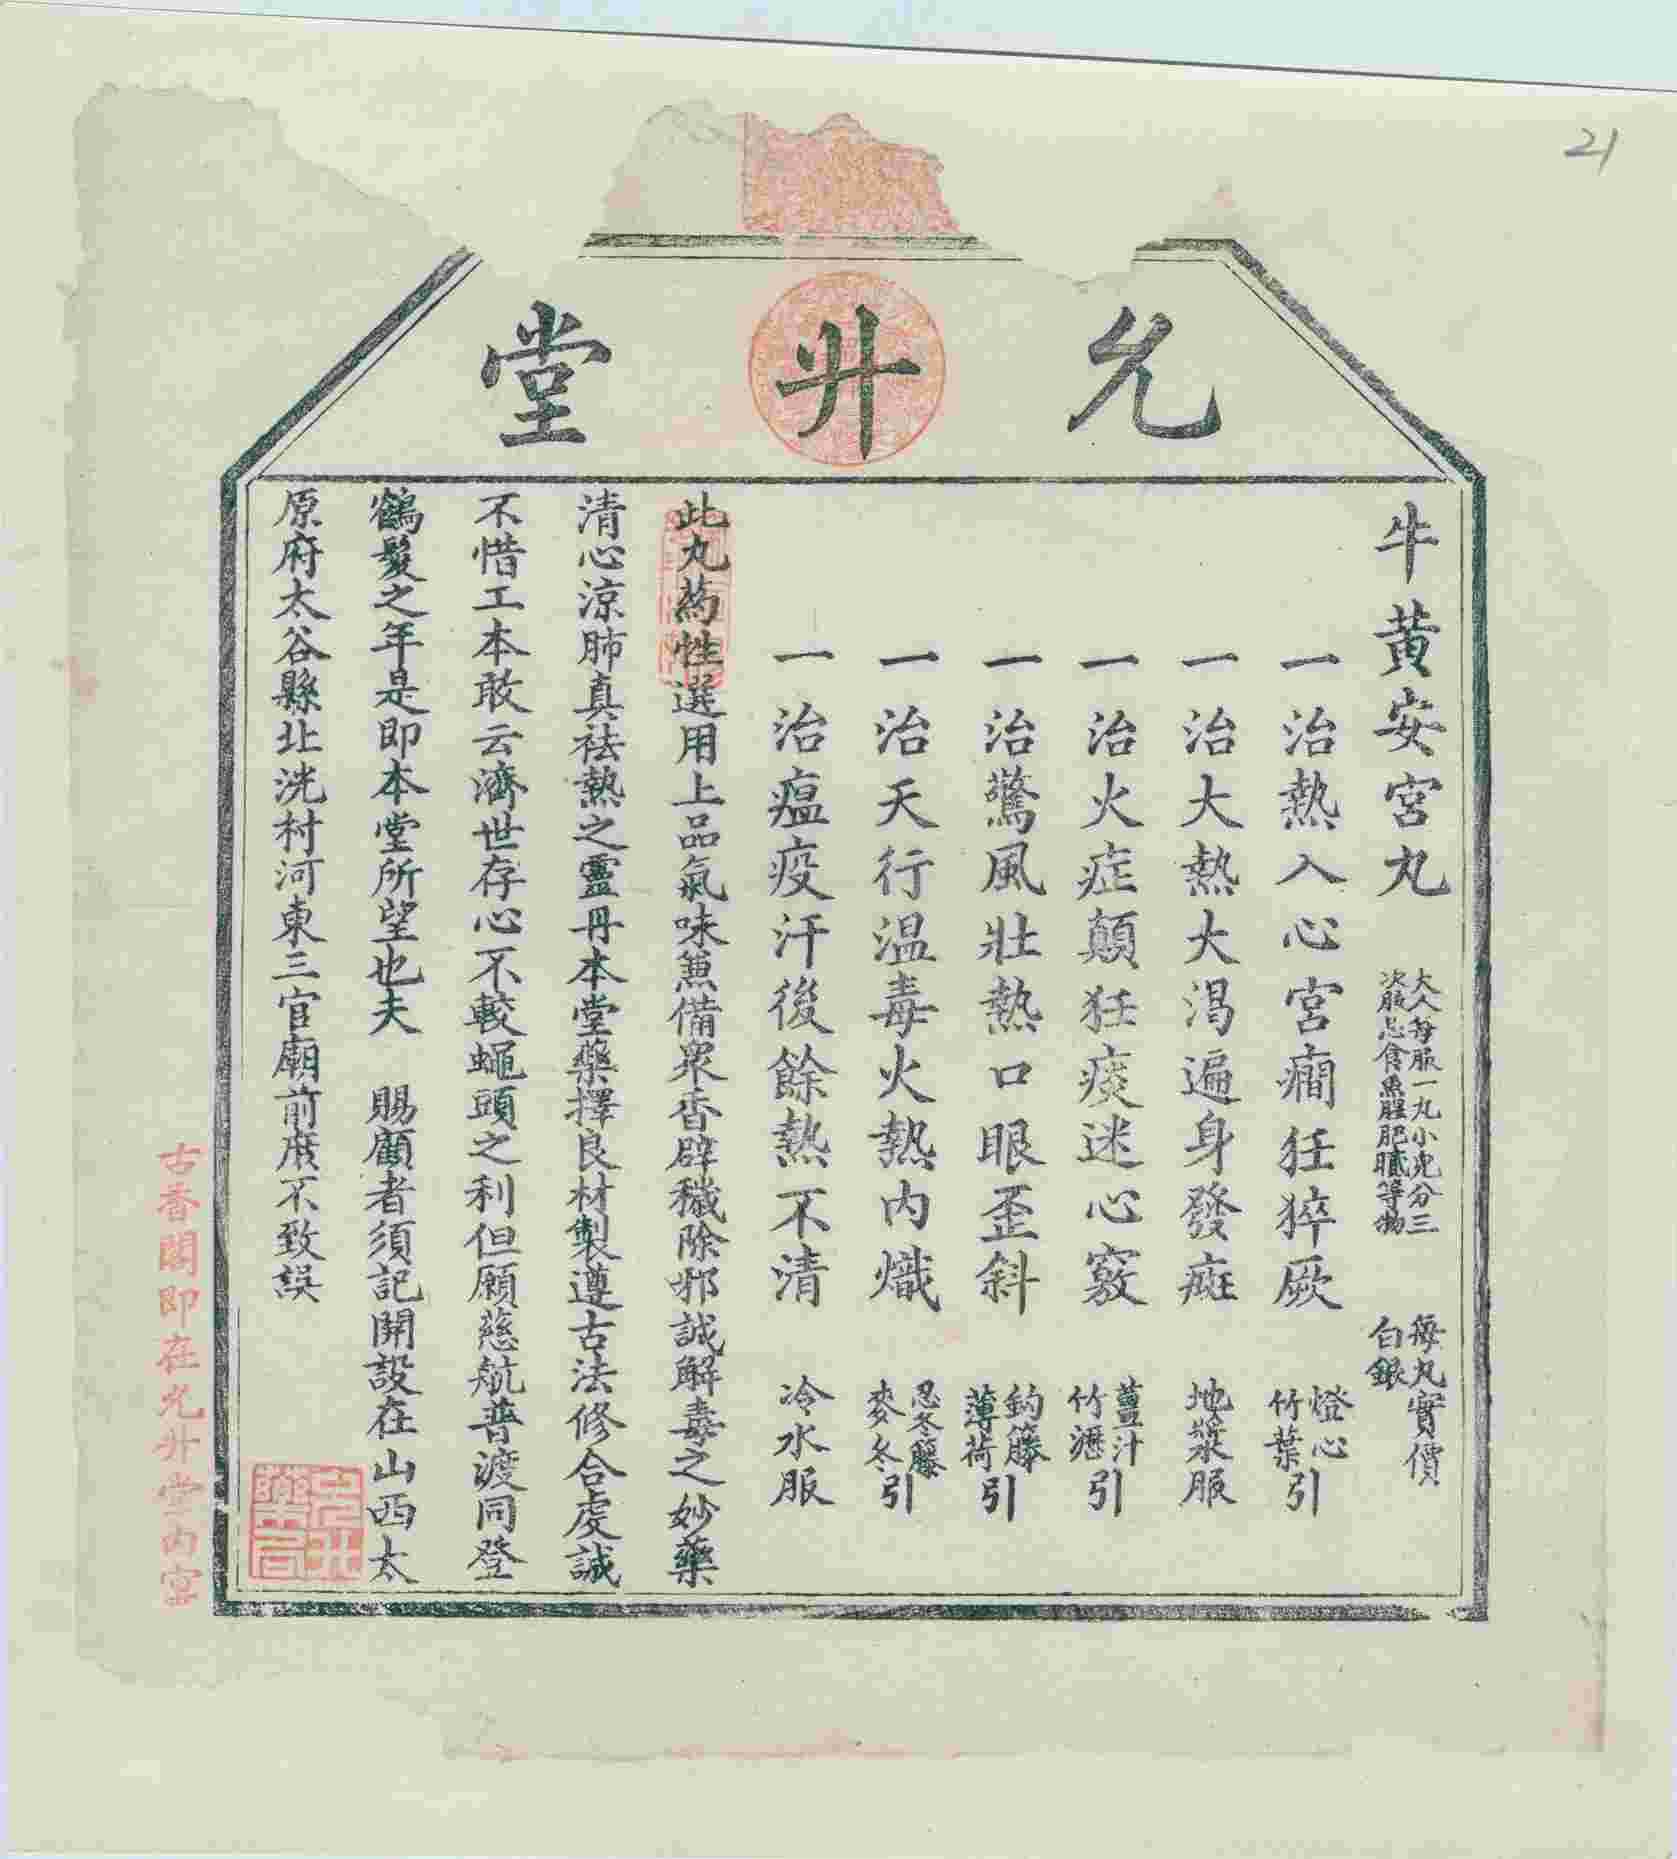 21
允升堂
牛黄安宮丸
大人每服一丸小児分三
次服忌食魚腥肥膩等物
每丸實價
白銀
一治熱入心宮癇狂猝厥 燈心竹葉引
一治大熱大渴遍身發斑 地漿服
一治火症顛狂痰迷心竅 薑汁竹瀝引
一治驚風壯熱口眼歪斜 鈎籐薄荷引
一治天行温毒火熱内熾 忍冬籐麥冬引
一治瘟疫汗後餘熱不清 冷水服
此丸葯性選用上品氣味兼備衆香辟穢除邪誠解毒之妙藥
清心涼肺真祛熱之靈丹本堂藥擇良材製遵古法修合虔誠
不惜工本敢云濟世存心不較蠅頭之利但願慈航普渡同登
鶴髮之年是即本堂所望也夫 賜顧者須記開設在山西太
原府太谷縣北洸村河東三官廟前庶不致誤
古香閣即在允升堂内室